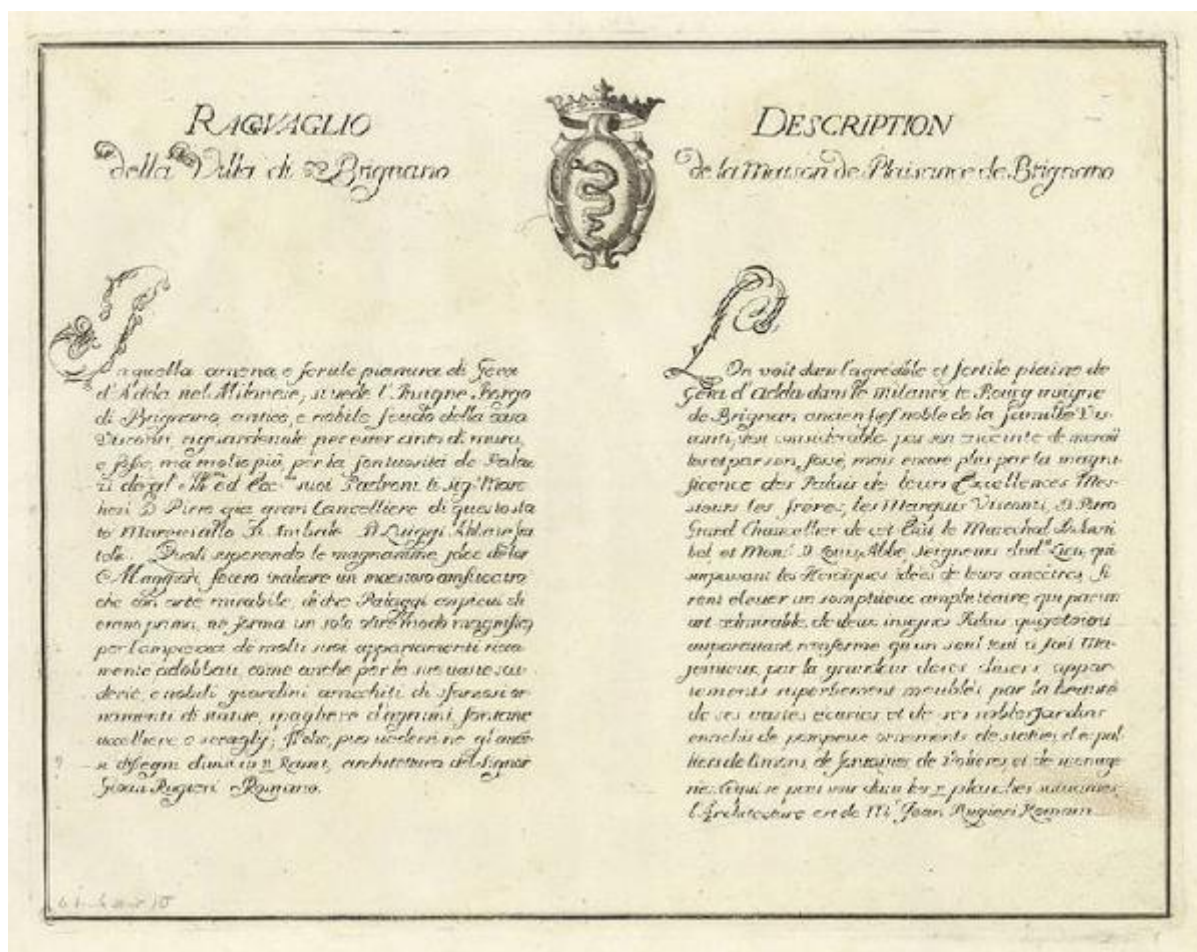 RAGVAGLIO
della Villa di Brignano
In quella amena e fertile pianura di Gera
d'Adda nel Milanese, si vede l'Insigne Borgo
di Brignano antico, e nobile feudo della casa
Visconti riguardevole per esser cinto di mura,
e fosse, ma molto più per la sontuosità de Palaz
zi degl' Ill.mi ed Ecc.mi suoi Padroni le sig. Mar
chesi D. Pirro gia gran Cancelliere di questo sta
to Maresciallo D. Anibale D. Luiggi Abbate fra
telli. Quali superando le magnanime idee de lor
Maggiori, fecero inalzare un maestoso anfiteatro
che con arte mirabile, di due Palaggi cospicui ch
erano prima, ne forma un solo oltremodo magnifico,
per l'ampiezza de molti suoi appartamenti ricca
mente adobbati, come anche per le sue vaste scu
derie, e nobili giardini arrichiti di sfarzosi or
namenti di statue, spagliere d'agrumi, fontane
uccelliere e seragly; Il che, puo vedersi ne gl'
disegni Rami, architettura del Signor
Gioan Rugieri Romano.
DESCRIPTION
de la Maison de Plaisance de Brignano
L'On voit dans l'agreable et fertile plaine de
Gera d'Adda dans le Milanez le Bourg insigne
de Brignan ancien fief noble de la famille Vis
conti, considerable par son enceinte de murail
les et par son fossé, mais encore plus par la magni
ficence des Palais de leurs Excellences Mes
sieurs les freres, les Marquis Visconti, D. Pirro
Grand Chancellier de cet Etat le Marechal D. Hani
bal et Mons.r D. Louis Abbe Seigneurs dud.t Lieu, qui
surpassant les Heroiques idées de leurs ancêtres, fi
rent elever un somptueux amphiteatre, qui par un
art admirable, de deux insignes Palais qui etoient
auparavant n'en forme qu'un seul tout a fait Ma
jestueux, par la grandeur de ses divers appar
tements superbement meublés par la beauté
de ses vastes ecuries et de ses nobles Jardins
enrichis de pompeux ornements de statues, d'espal
liers de limons, de fontaines de Volieres, et de menage
ries. Ce qui se peut voir dans les planches suivantes
l'Architecture est de M.r Jean Rugieri Romain